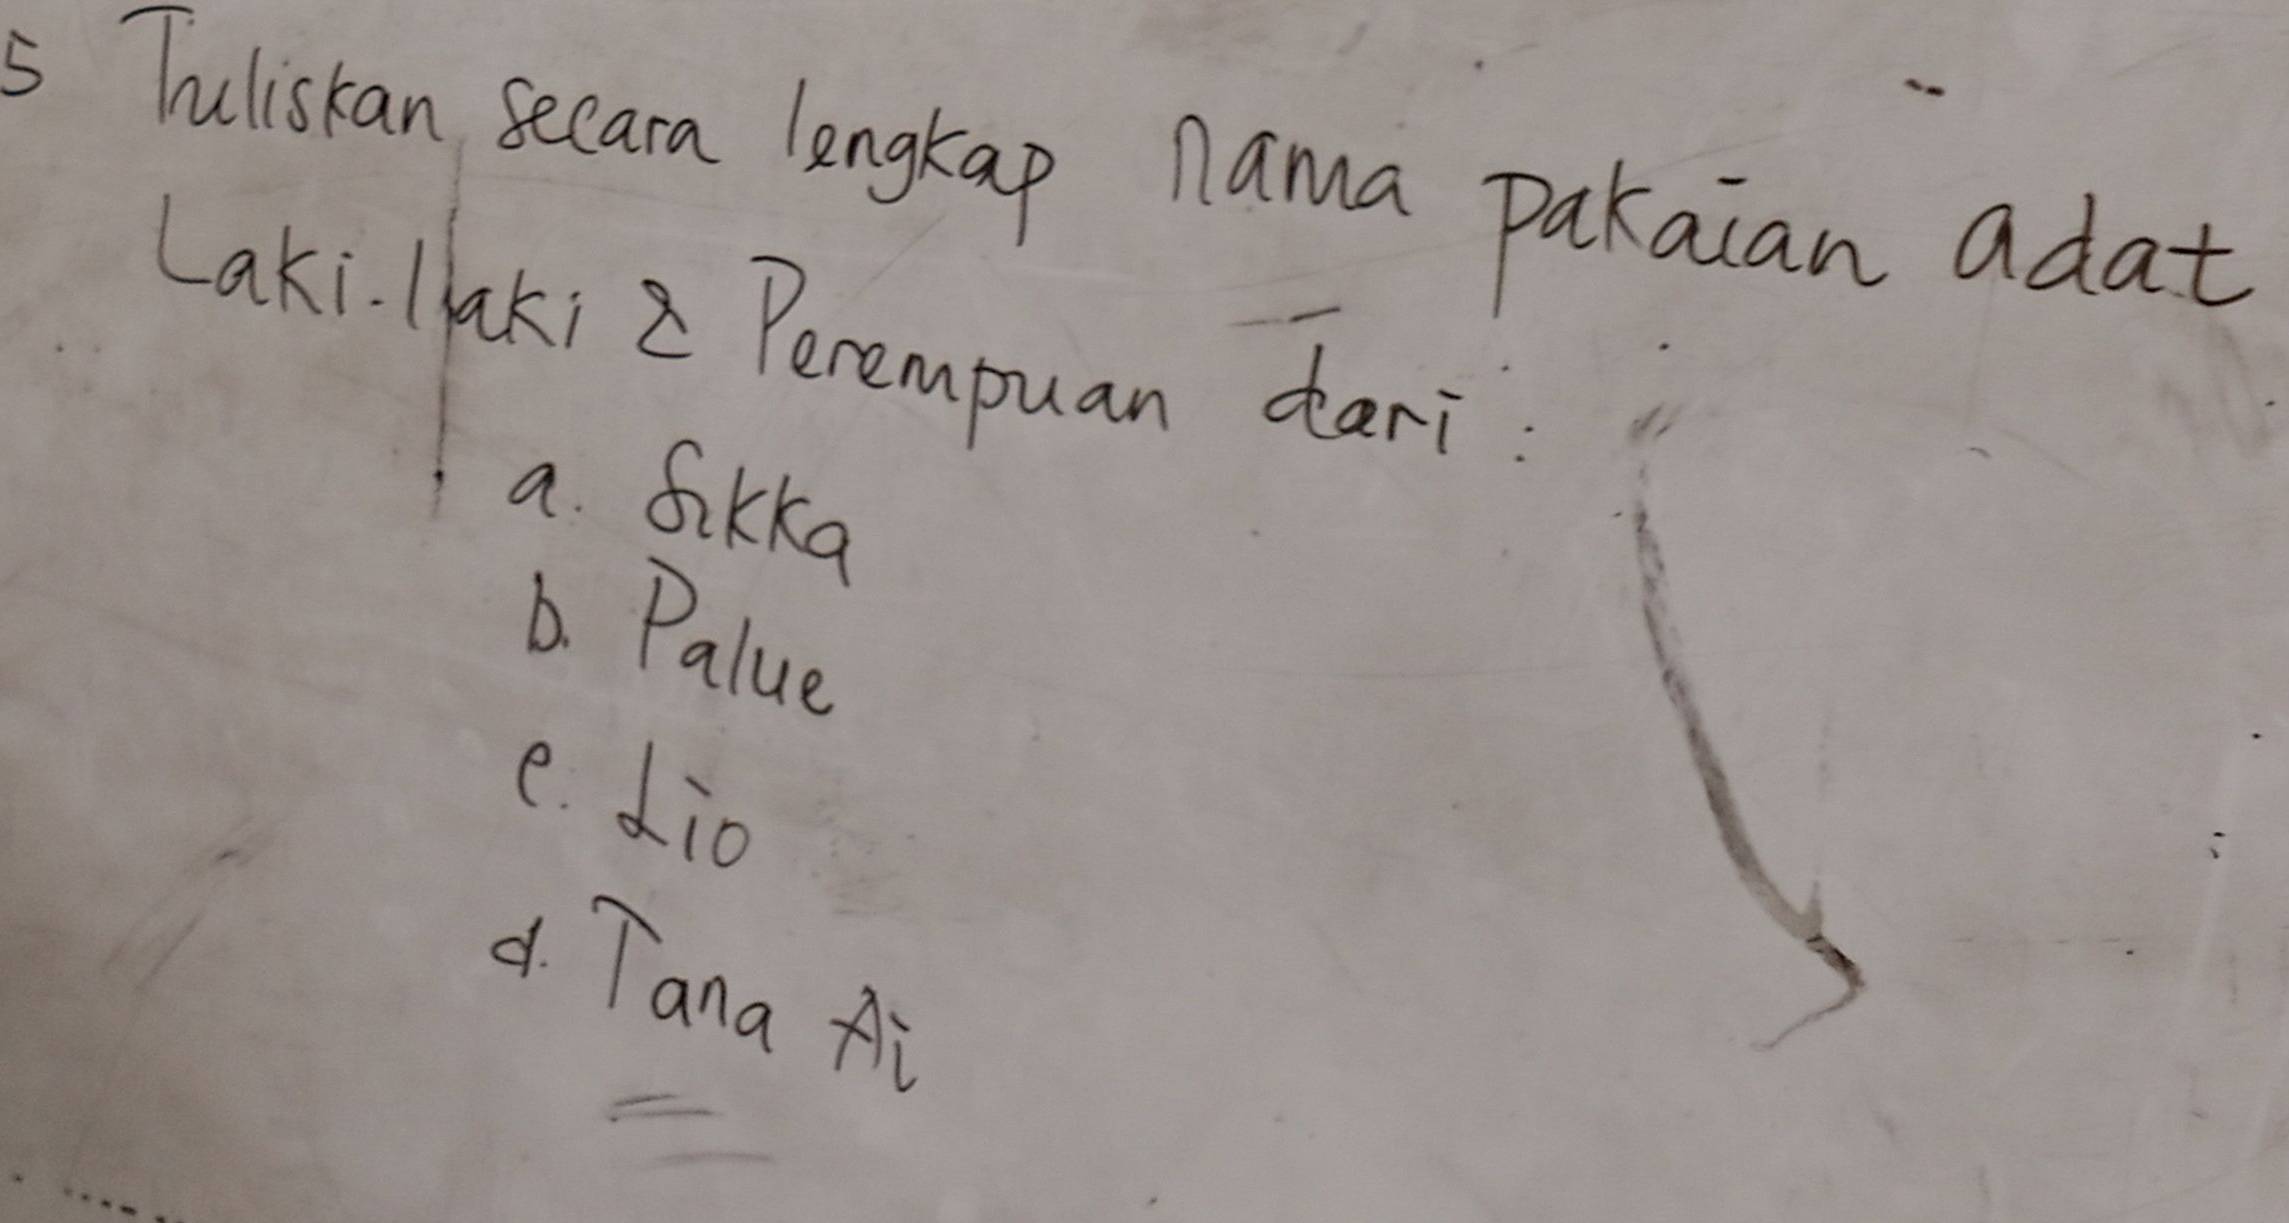 5 Tuliskan secara lengkap nama pakaian adat
Laki-laki & Perempuan dari :
a. Sikka
b. Palue
c. Lio
d. Tana Ai